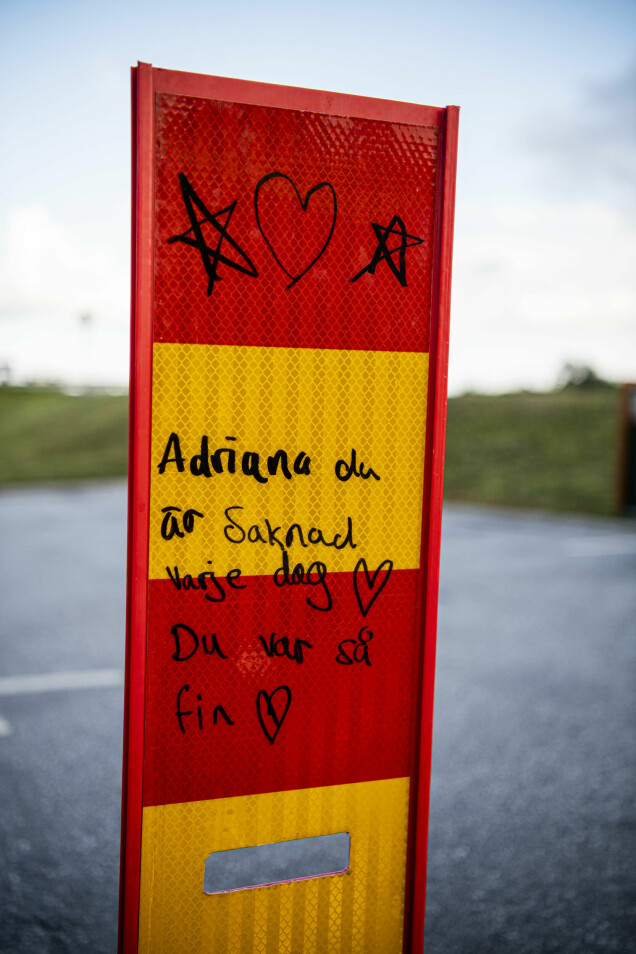 Adriana du
är Saknad
varje dag
Du var så
fin